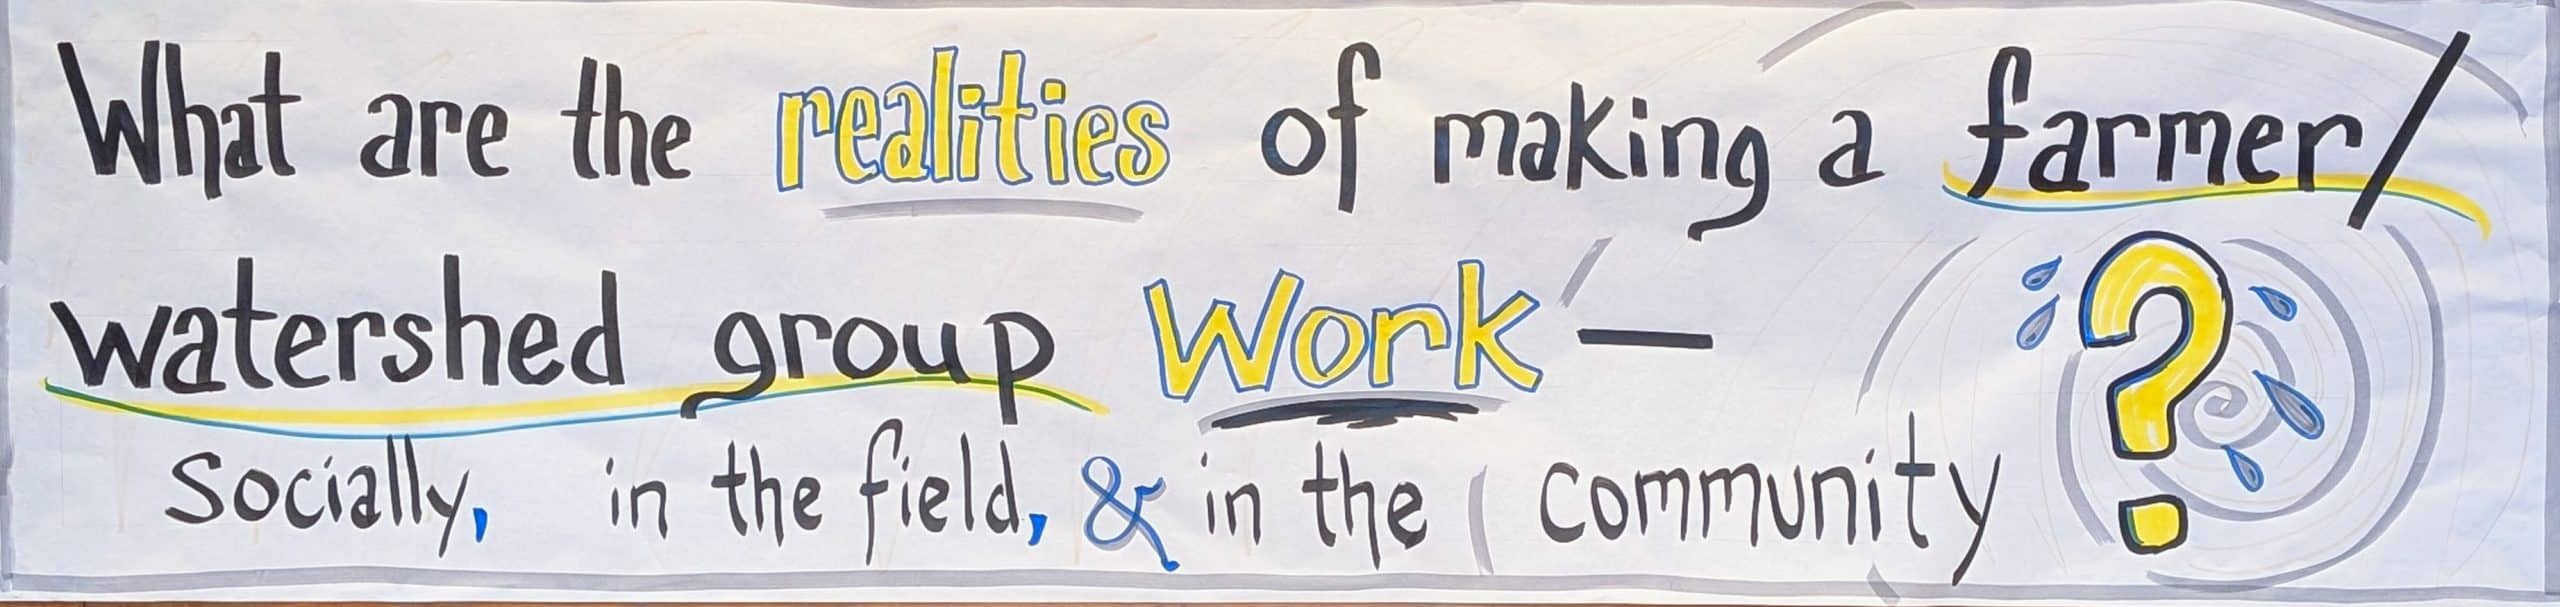 What are the realities of making a farmer/
watershed group Work —
Socially, in the field, & in the community ?